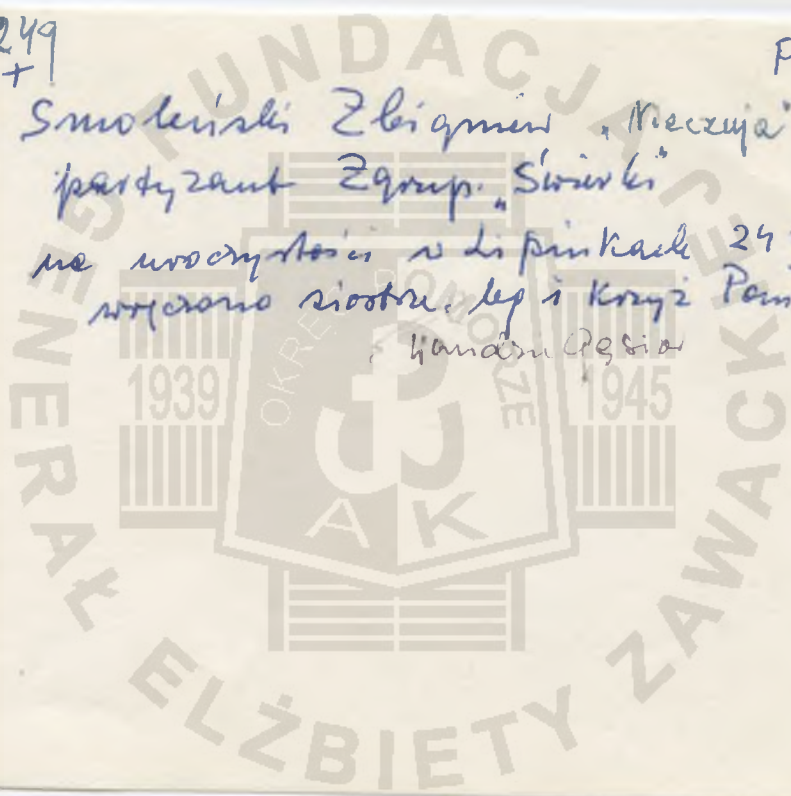 249
+
P
Smoleński Zbigniew „Nieczuja”
partyzant Zgrup. „Świerki”
na uroczystości w Lipinkach 24
wręczono siostrze. leg i Krzyż
FUNDACJA
GENERAŁ ELŻBIETY ZAWACK
OKRĘG POMORZE
1939
1945
AK